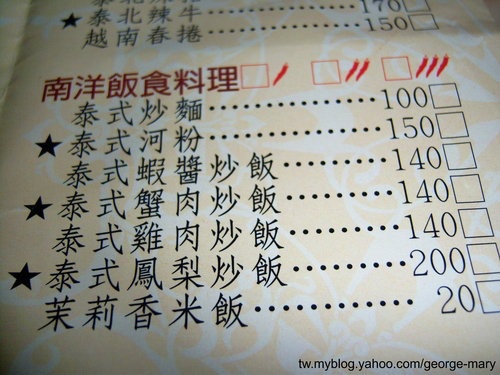 泰北辣牛 170
★越南春捲 150
南洋飯食料理
泰式炒麵 100
★泰式河粉 150
泰式蝦醬炒飯 140
★泰式蟹肉炒飯 140
泰式雞肉炒飯 140
★泰式鳳梨炒飯 200
茉莉香米飯 20
tw.myblog.yahoo.com/george-mary